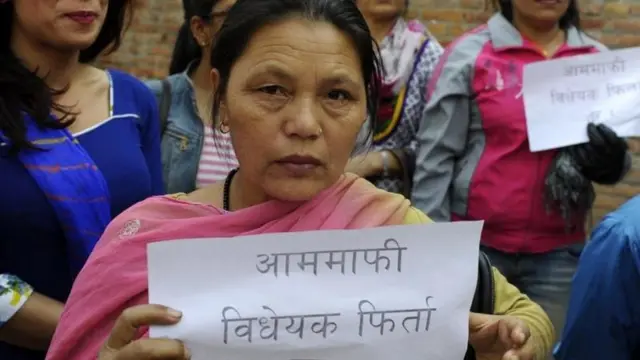 आममाफी
विधेयक फिर्ता
आममाफी
विधेयक फि